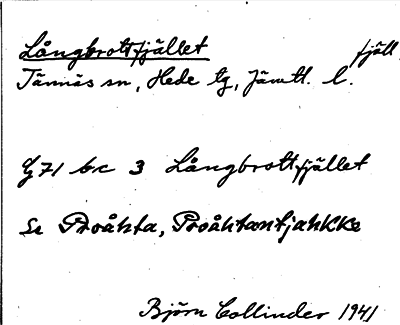 Långbrottfjället fjäll
Tännäs sn, Hede tg, Jämtl. l.
G 71 bc 3 Långbrottfjället
Se Proåhta, Proåhtantjahkke
Björn Collinder 1941